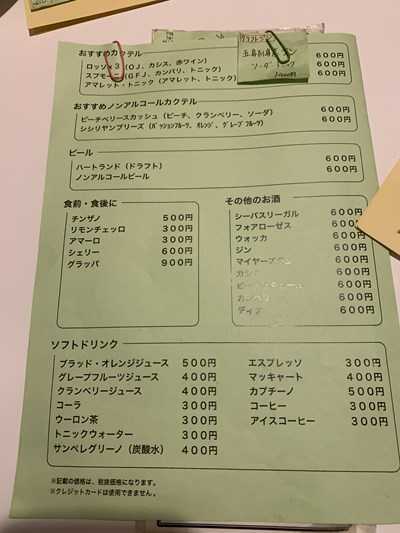 おすすめカクテル
ロッソ×3 (OJ、カシス、赤ワイン) 600円
スプモーニ(GFJ、カンパリ、トニック) 600円
アマレット・トニック(アマレット、トニック)
ソーダ
おすすめノンアルコールカクテル
ピーチベリースカッシュ(ピーチ、クランベリー、ソーダ) 600円
シシリヤンブリーズ(パッションフルーツ、オレンジ、グレープフルーツ) 600円
ビール
ハートランド(ドラフト) 600円
ノンアルコールビール 600円
食前・食後に
チンザノ 500円
リモンチェッロ 300円
アマーロ 300円
シェリー 600円
グラッパ 900円
その他のお酒
シーバスリーガル 600円
フォアローゼス 600円
ウォッカ 600円
ジン 600円
マイヤーズラム 600円
600円
600円
600円
600円
ソフトドリンク
ブラッド・オレンジジュース 500円
グレープフルーツジュース 400円
クランベリージュース 400円
コーラ 300円
ウーロン茶 300円
トニックウォーター 300円
サンペレグリーノ(炭酸水) 400円
エスプレッソ 300円
マッキャート 400円
カプチーノ 500円
コーヒー 300円
アイスコーヒー 300円
※記載の価格は、税抜価格になります。
※クレジットカードは使用できません。